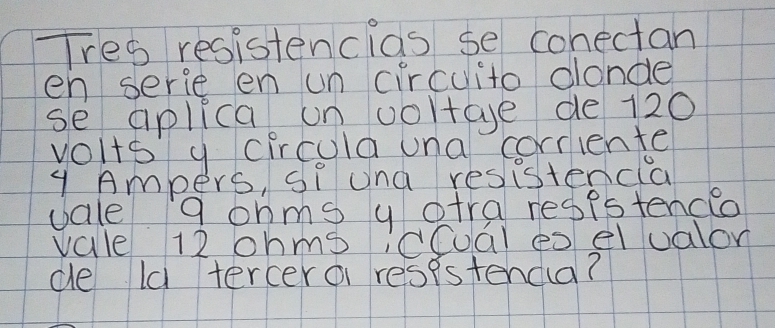 Tres resistencias se conectan
en serie en un circuito donde
se aplica un voltaje de 120
volts y circula una corriente
4 Ampers, si una resistencia
vale 9 ohms y otra resistencia
vale 12 ohms ¿Cuál es el valor
de la tercera resistencia?